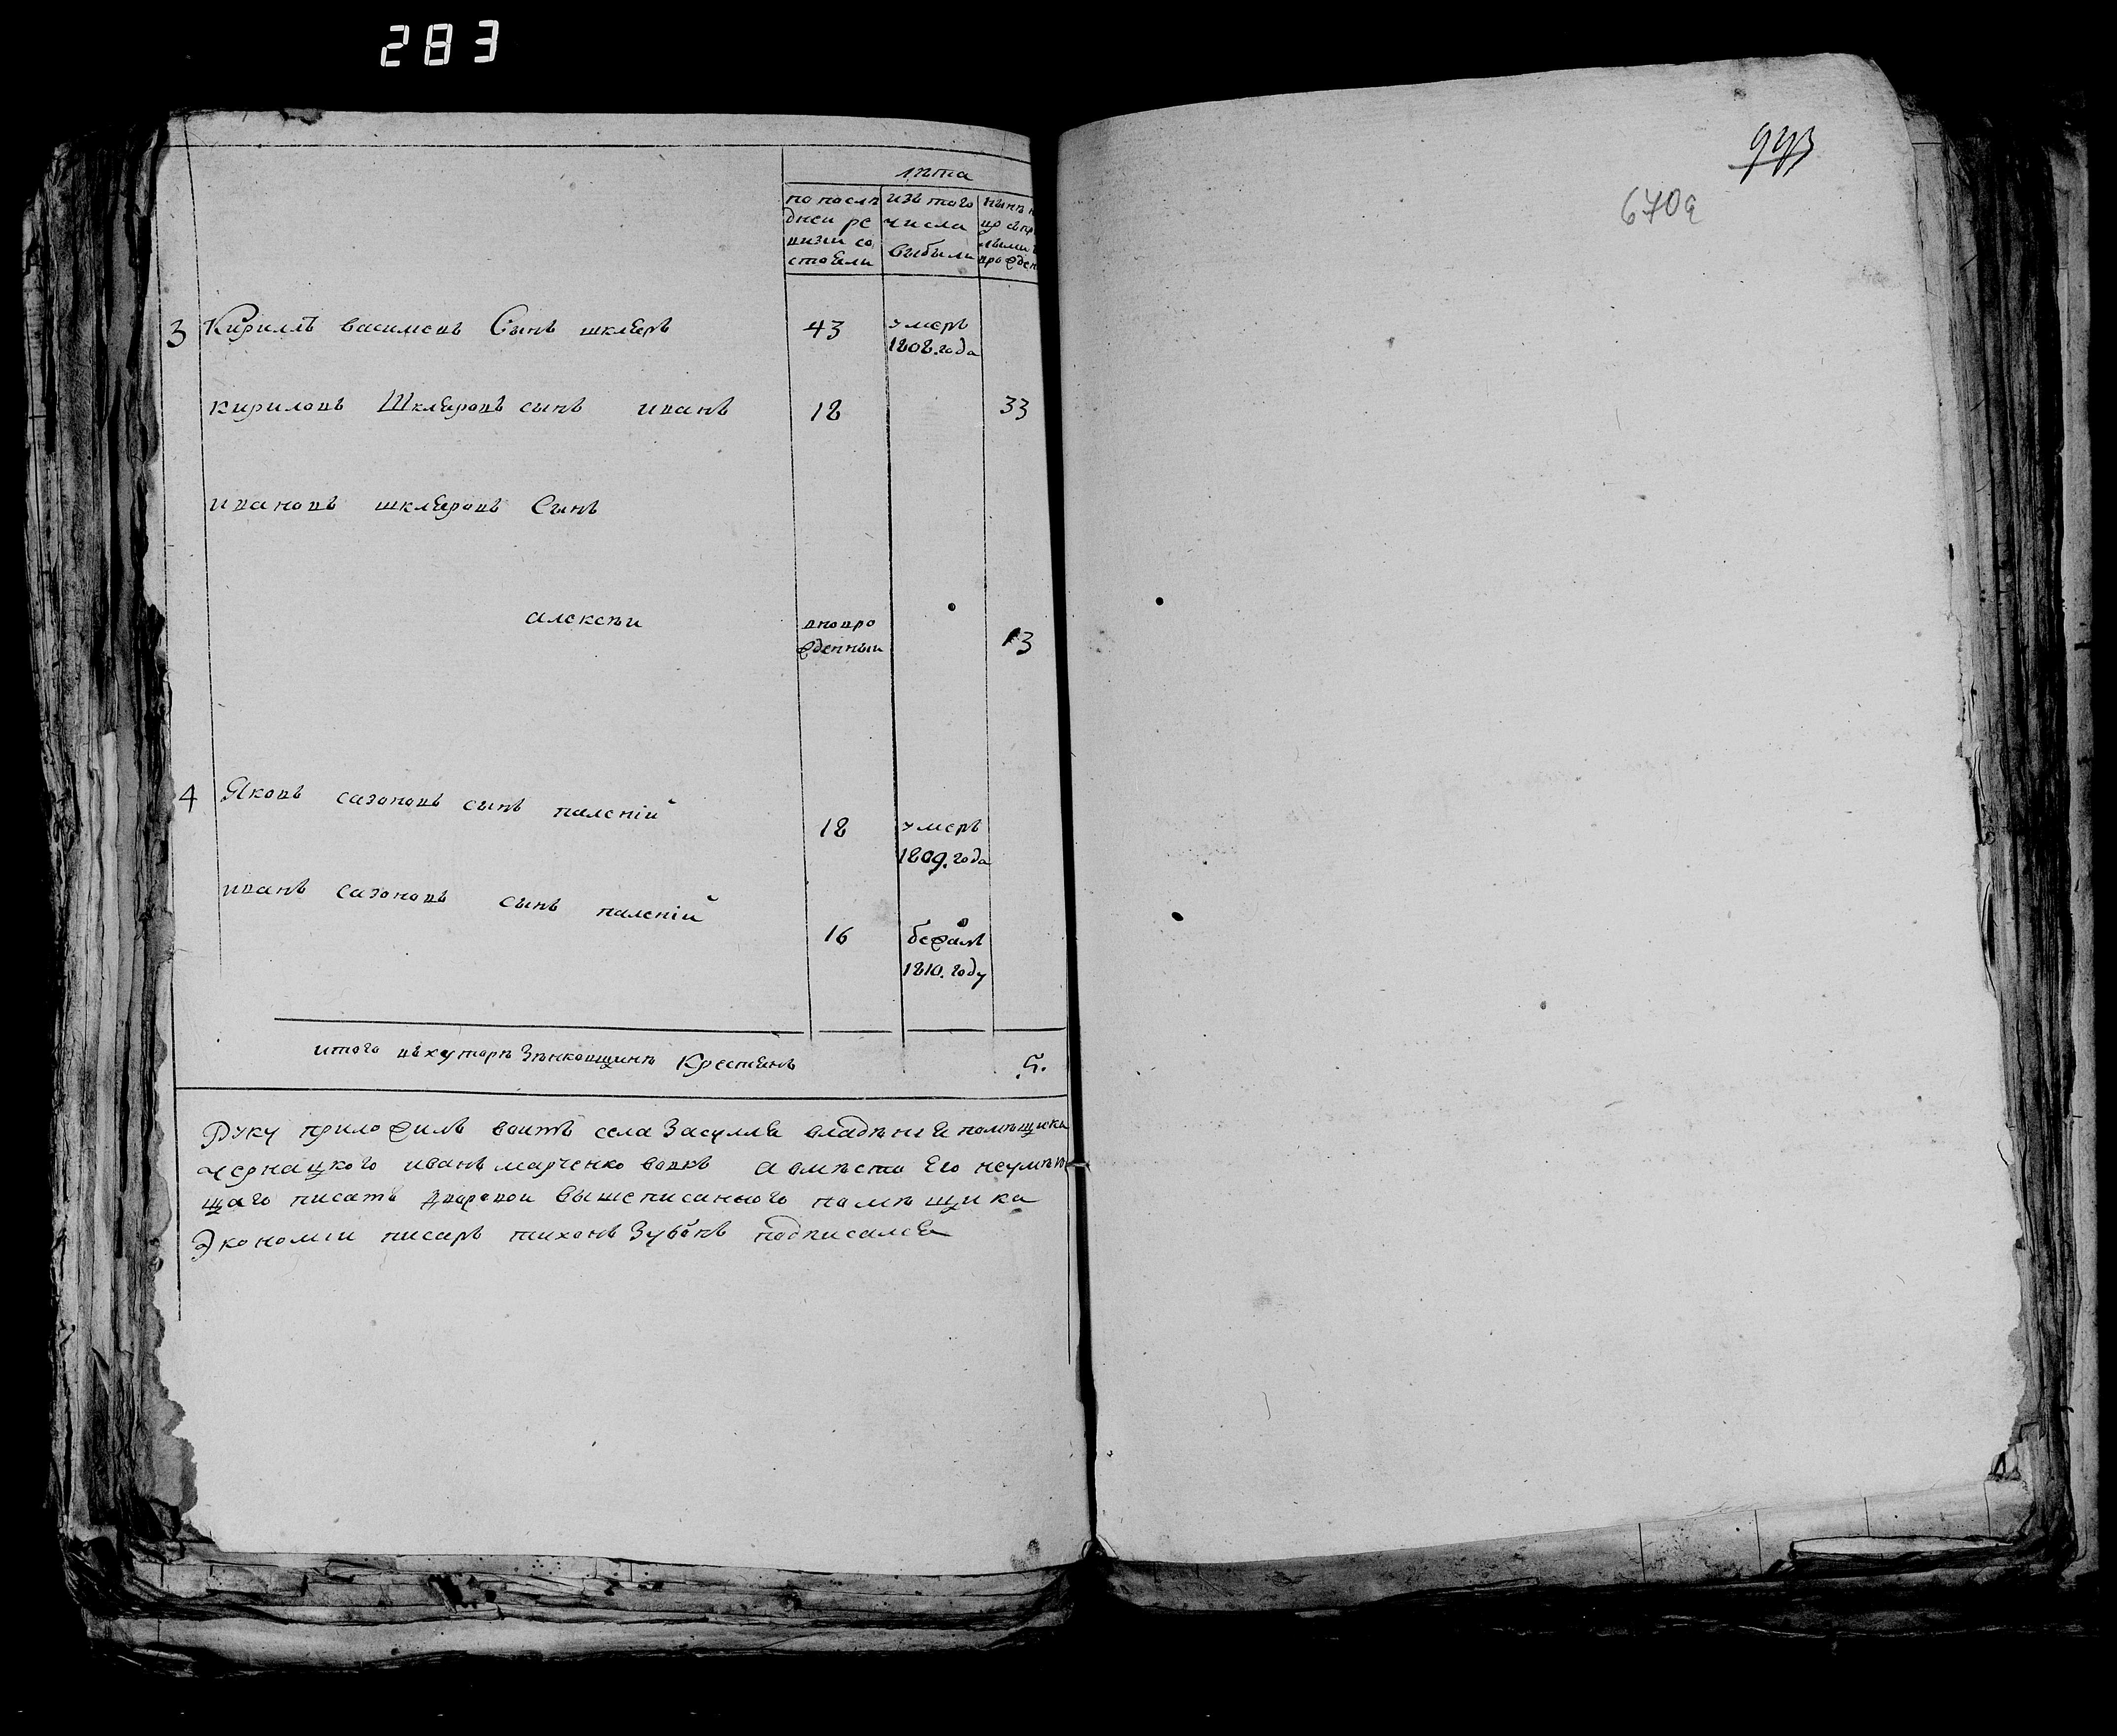 283
993
670а
лѣта
по послѣ
дней ре
визіи со
стояли
изъ того
числа
выбыли
нынѣ
3 Кирилъ василіевъ Сынъ шкляръ 43 умеръ
1808. года
кириловъ Шкляровъ сынъ иванъ 18 33
ивановъ шкляровъ Сынъ
алексѣи вновро
жденныи 13
4 Яковъ сазоновъ сынъ паленій 18 умеръ
1809. года
иванъ сазоновъ сынъ паленій 16 бежалъ
1810. году
итого въ хуторѣ Зѣнковщинѣ Крестянъ 5.
Руку приложилъ воитъ села Засулля владѣния помѣщика
Чернацкого иванъ марченко вовкъ а вмѣсто Его неумѣю
щаго писать дворовои вышеписанного помѣщика
Экономіи писаръ тихонъ Зубокъ подписался